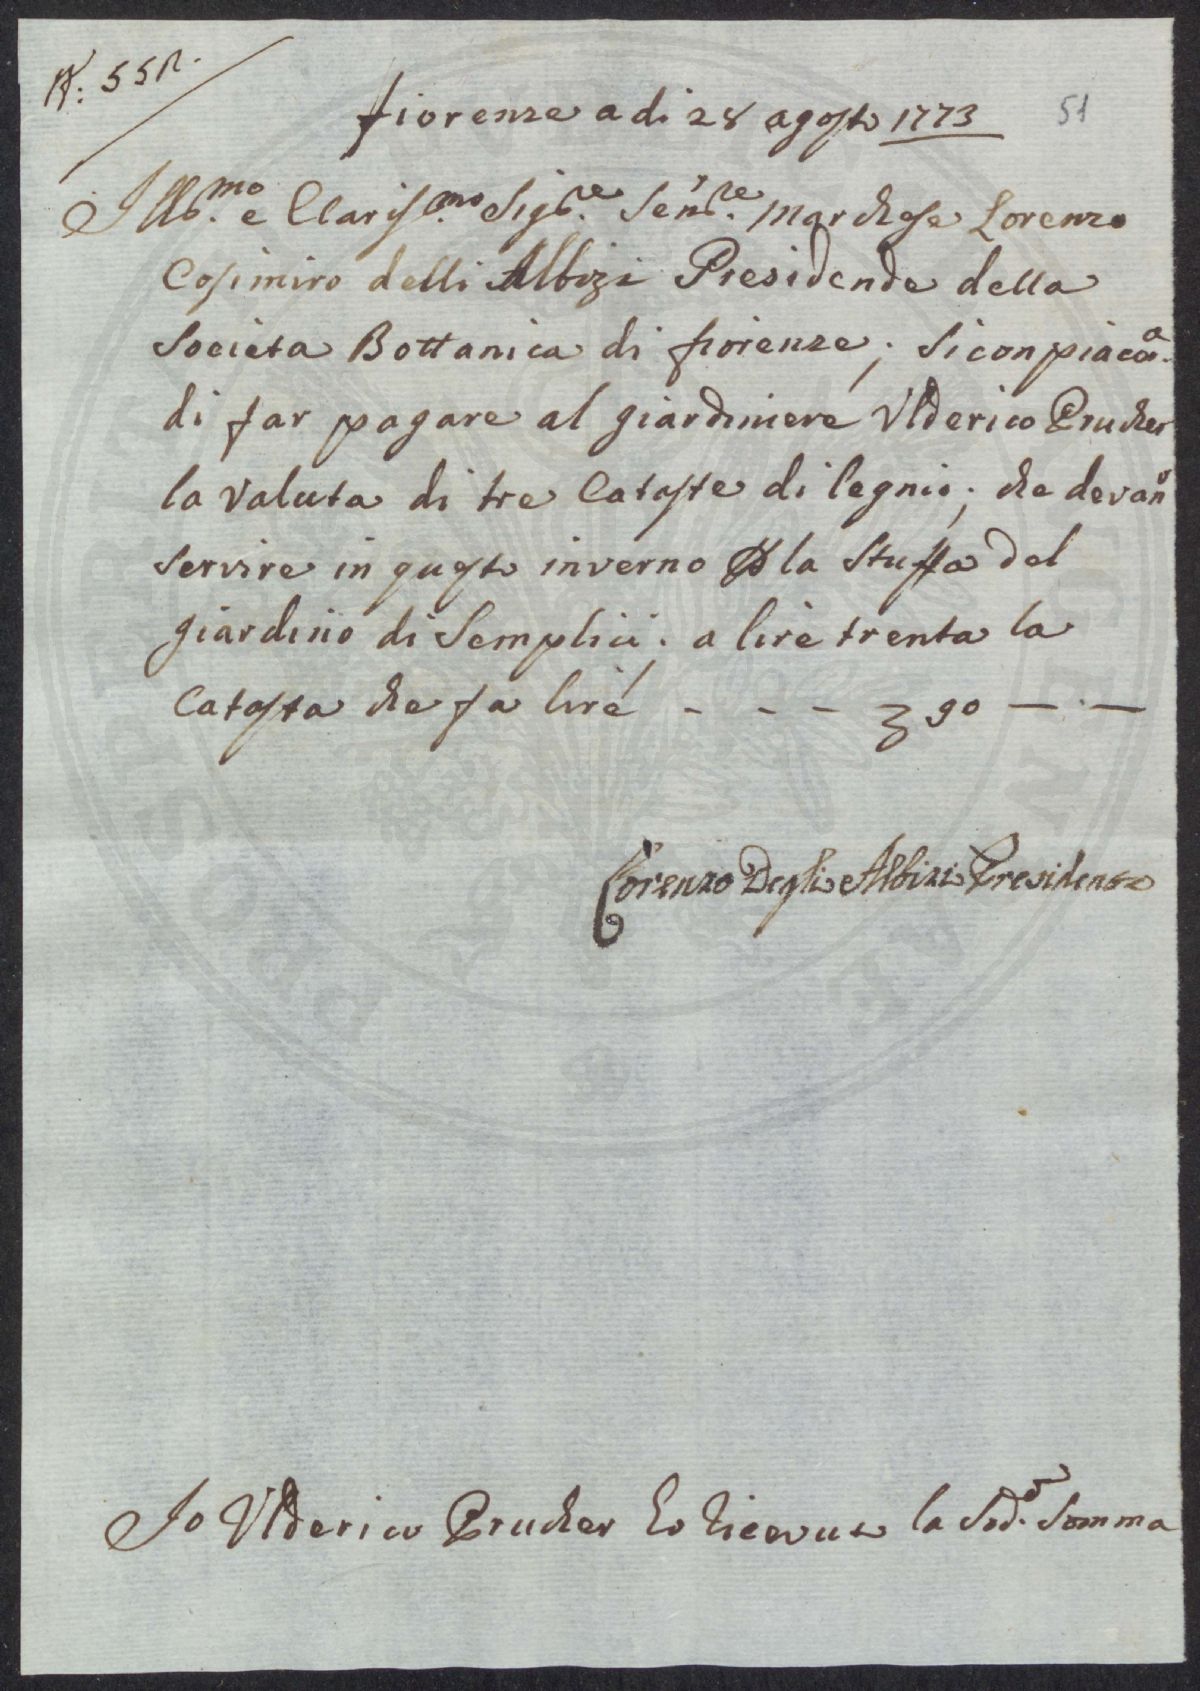 N: 55R.
51
fiorenze a di 28 agosto 1773
Illb.mo e Clariss.mo Sigb.re Senb.re Marchese Lorenzo
Cosimiro delli Albizi Presidende della
Societa Bottanica di fiorenze; si conpiacca
di far pagare al giardiniere Ulderico Prucher
la valuta di tre Cataste di legnio; che devan
servire in questo inverno p la Stuffa del
giardino di Semplici; a lire trenta la
Catasta che fa lire - - - 90 — . —
Lorenzo Degli Albizi Presidente
Io Ulderico Prucher ho Ricevuto la Sod.a Somma